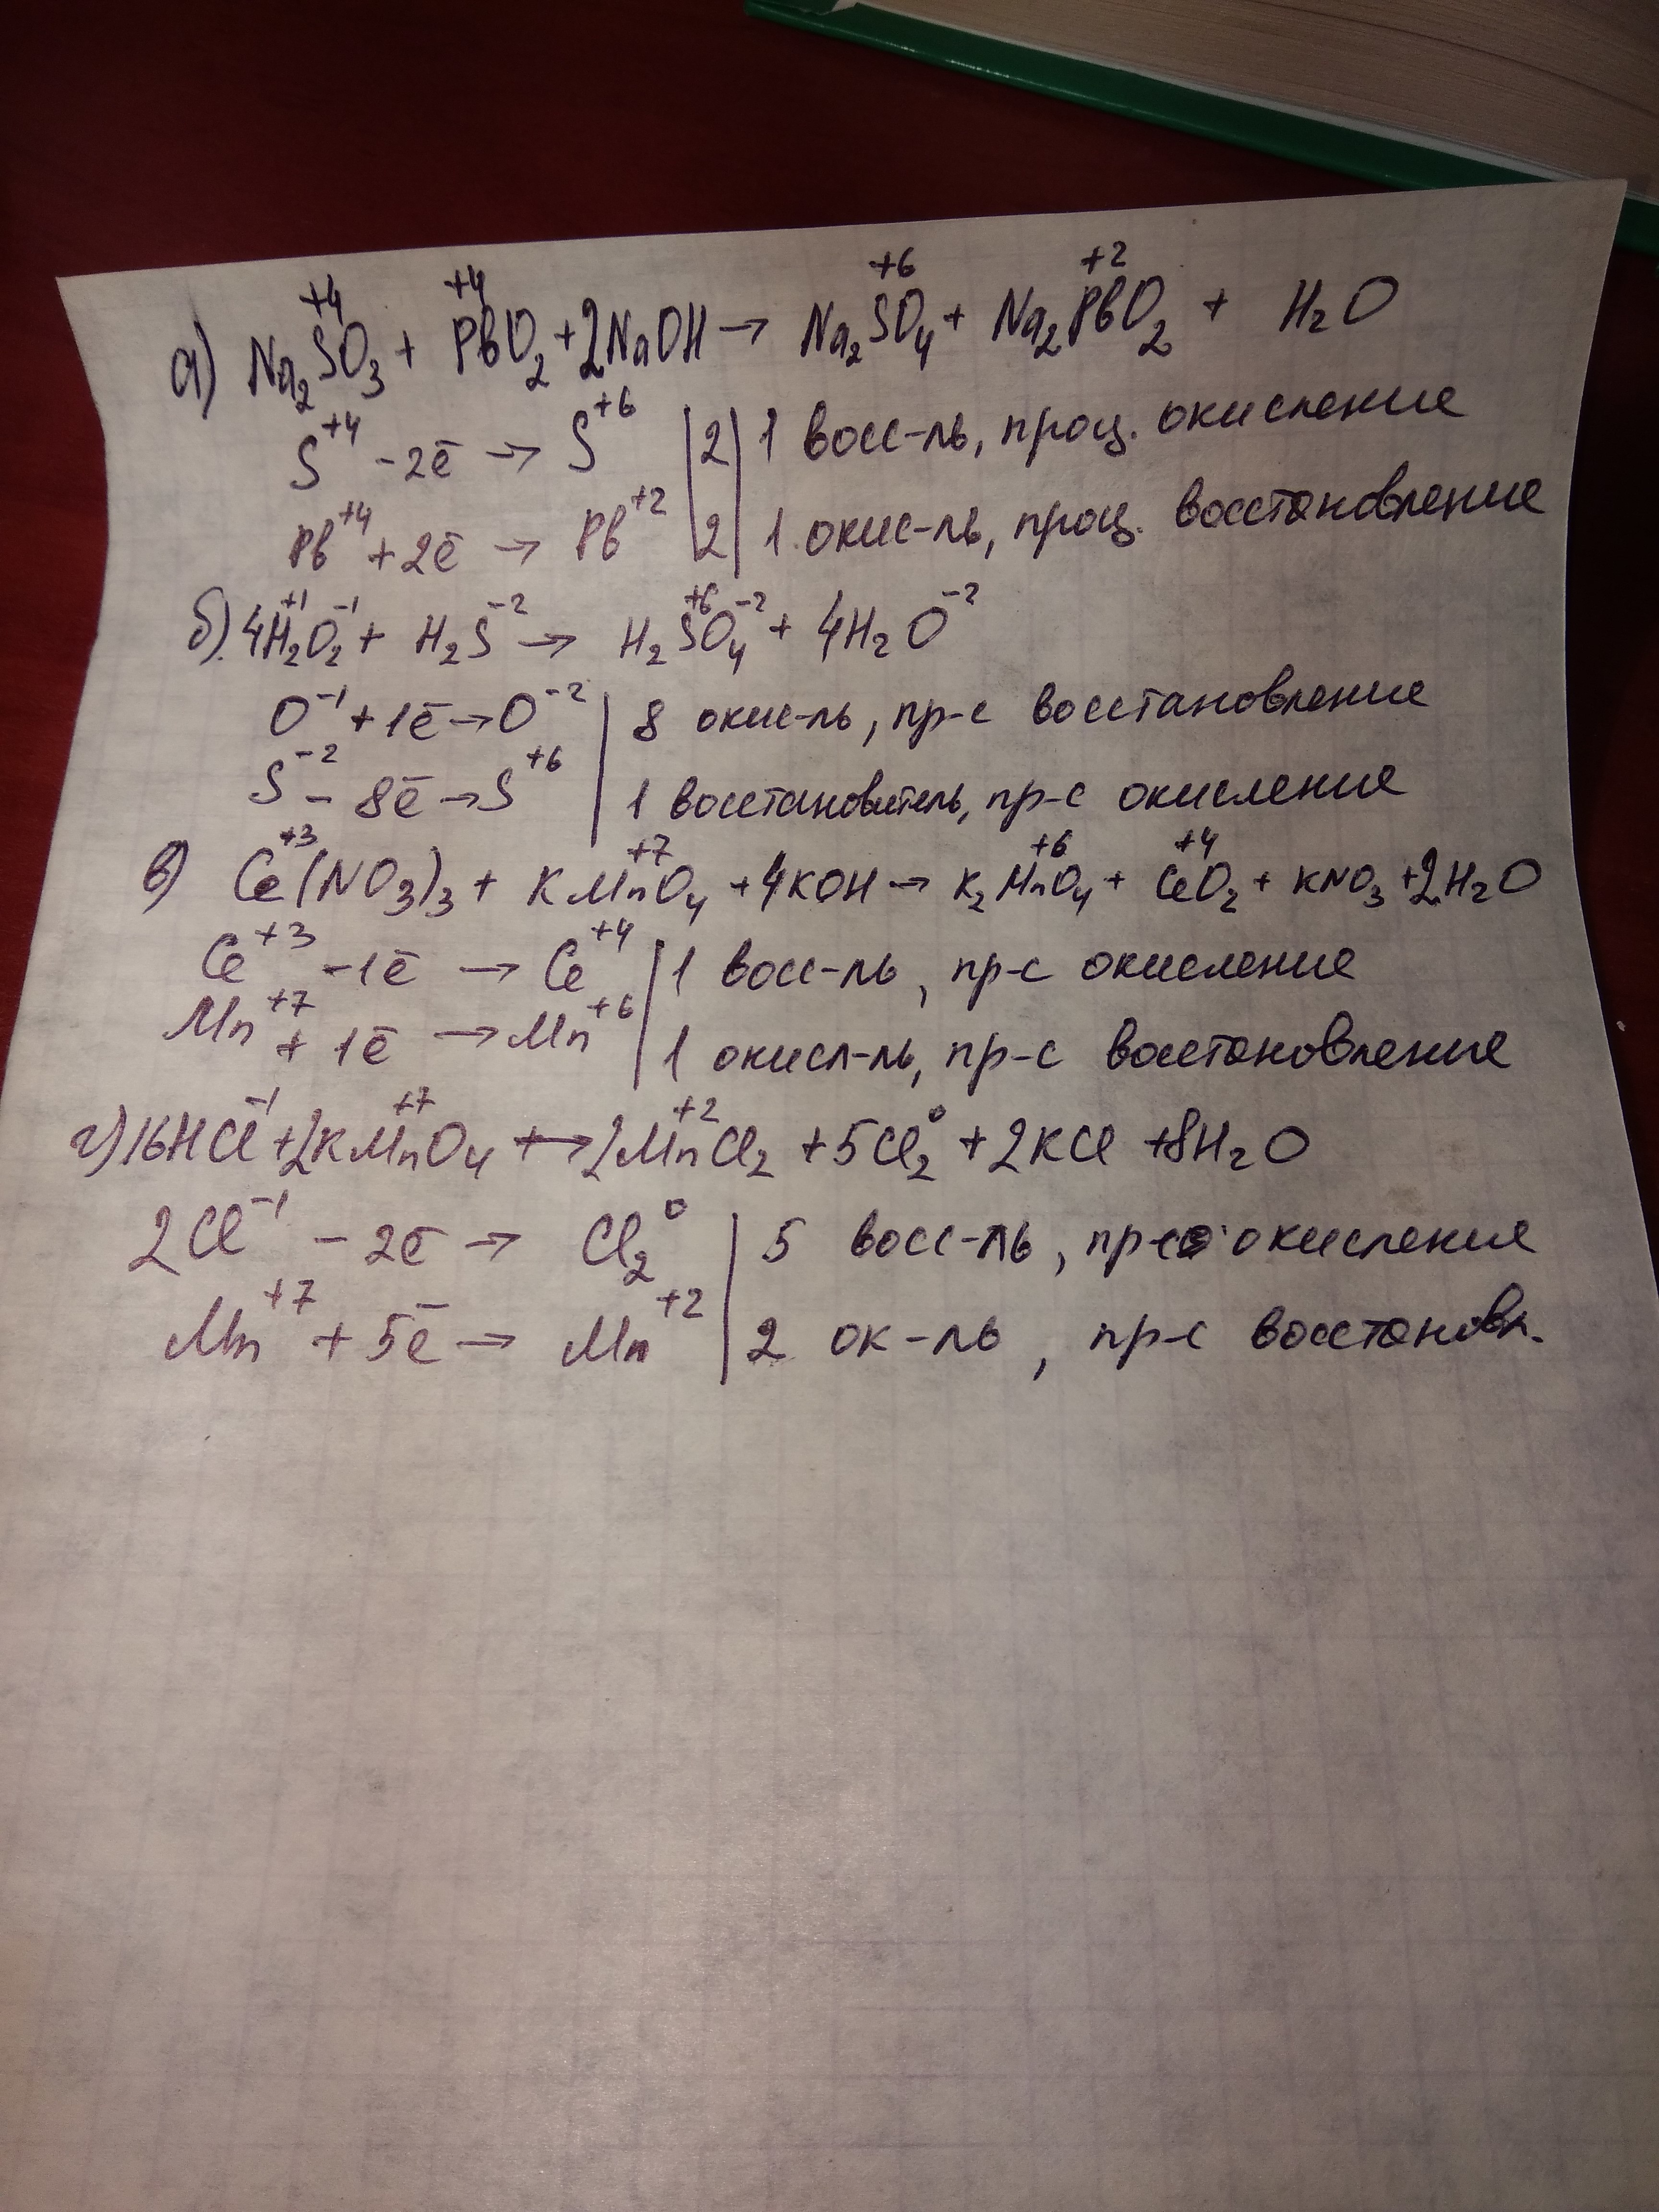 а) Na₂S⁺⁴O₃ + Pb⁺⁴O₂ + 2NaOH → Na₂S⁺⁶O₄ + Na₂Pb⁺²O₂ + H₂O
S⁺⁴ - 2ē → S⁺⁶ |2| 1 восс-ль, проц. окисление
Pb⁺⁴ + 2ē → Pb⁺² |2| 1 окис-ль, проц. восстановление
б) 4H₂⁺¹O₂⁻¹ + H₂S⁻² → H₂S⁺⁶O₄⁻² + 4H₂O⁻²
O⁻¹ + 1ē → O⁻² | 8 окис-ль, пр-с восстановление
S⁻² - 8ē → S⁺⁶ | 1 восстановитель, пр-с окисление
в) Ce⁺³(NO₃)₃ + KMn⁺⁷O₄ + 4KOH → K₂Mn⁺⁶O₄ + Ce⁺⁴O₂ + KNO₃ + 2H₂O
Ce⁺³ - 1ē → Ce⁺⁴ | 1 восс-ль, пр-с окисление
Mn⁺⁷ + 1ē → Mn⁺⁶ | 1 окисл-ль, пр-с восстановление
г) 16HCl⁻¹ + 2KMn⁺⁷O₄ → 2Mn⁺²Cl₂ + 5Cl₂⁰ + 2KCl + 8H₂O
2Cl⁻¹ - 2ē → Cl₂⁰ | 5 восс-ль, пр-с окисления
Mn⁺⁷ + 5ē → Mn⁺² | 2 ок-ль, пр-с восстановл.